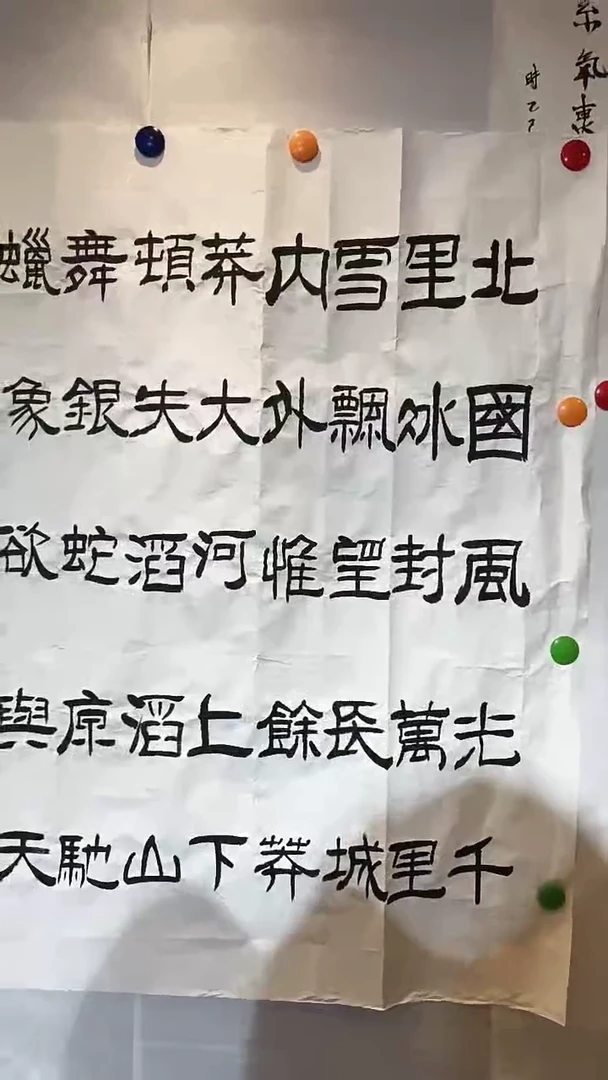 氣東
時乙
北國風光千
里冰封萬里
雪飄望長城
内外惟餘莽
莽大河上下
頓失滔滔山
舞銀蛇原馳
蠟象欲與天